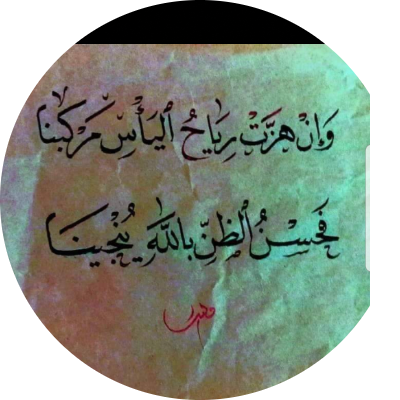 وَإنْ هزَّتْ رِيَاحُ اليَأْسِ مَركَبَنا
فَحُسْنُ الظنِّ باللَّهِ يُنْجينَا